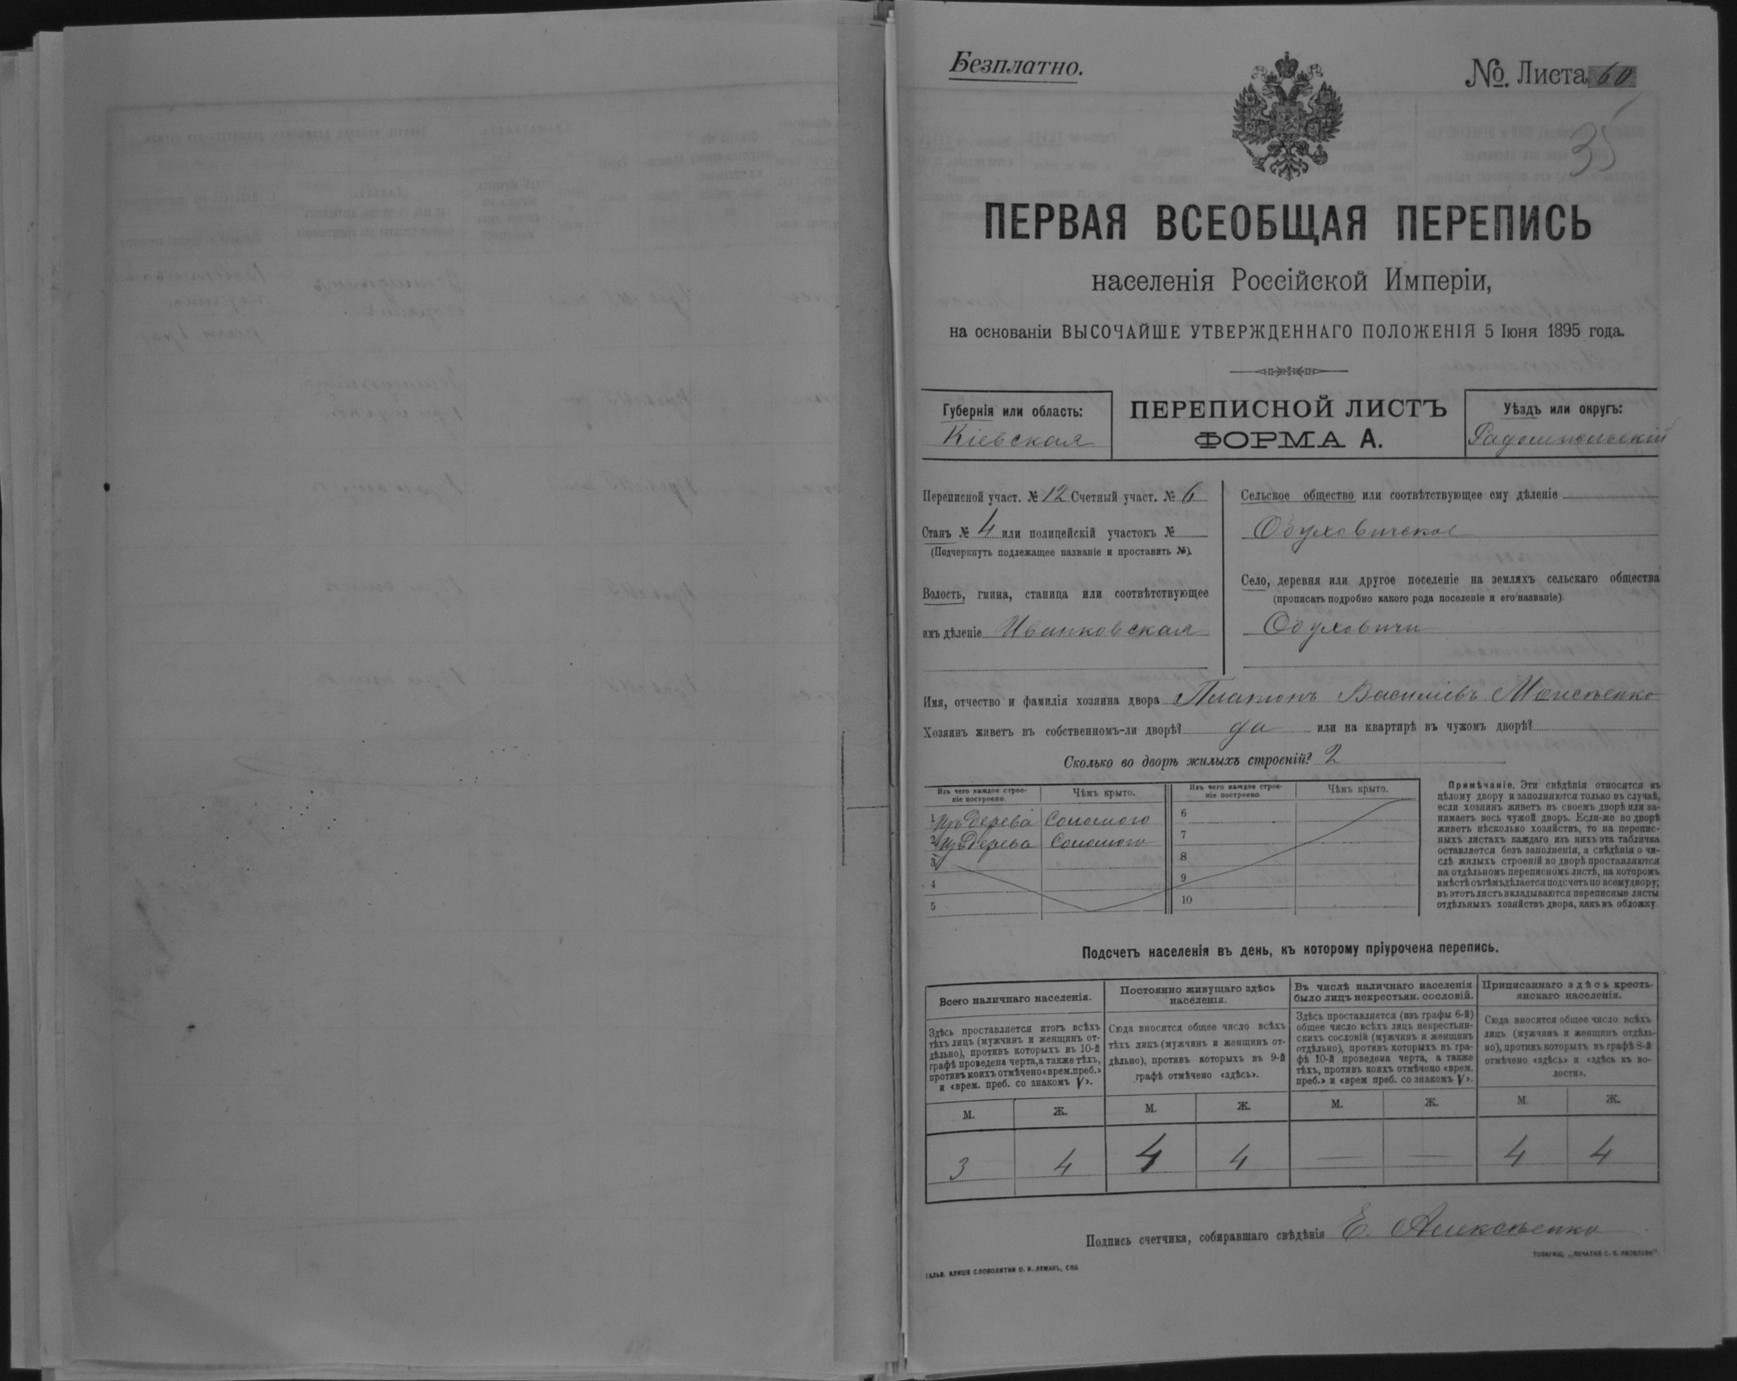 Безплатно.
№. Листа 60
35
ПЕРВАЯ ВСЕОБЩАЯ ПЕРЕПИСЬ
населенія Россійской Имперіи,
на основаніи ВЫСОЧАЙШЕ УТВЕРЖДЕННАГО ПОЛОЖЕНІЯ 5 Іюня 1895 года.
Губернія или область:
Кіевская
ПЕРЕПИСНОЙ ЛИСТЪ
ФОРМА А.
Уѣздъ или округъ:
Радомысльскій
Переписной участ. № 12 Счетный участ. № 6
Станъ № 4 или полицейскій участокъ №
(Подчеркнуть подлежащее названіе и проставить №).
Волость, гмина, станица или соотвѣтствующее
имъ дѣленіе Иванковская
Сельское общество или соотвѣтствующее ему дѣленіе
Обуховичское
Село, деревня или другое поселеніе на земляхъ сельскаго общества
(прописать подробно какого рода поселеніе и его названіе).
Обуховичи
Имя, отчество и фамилія хозяина двора Платонъ Василіевъ Моисѣенко
Хозяинъ живетъ въ собственномъ-ли дворѣ? да или на квартирѣ въ чужомъ дворѣ?
Сколько во дворѣ жилыхъ строеній? 2
Изъ чего каждое строе-
ніе построено.
Чѣмъ крыто.
Изъ чего каждое строе-
ніе построено
Чѣмъ крыто.
1 Изъ дерева Соломою
2 Изъ дерева Соломою
3
4
5
6
7
8
9
10
Примѣчаніе. Эти свѣдѣнія относятся къ
цѣлому двору и заполняются только въ случаѣ,
если хозяинъ живетъ въ своемъ дворѣ или за-
нимаетъ весь чужой дворъ. Если-же во дворѣ
живетъ нѣсколько хозяйствъ, то на перепис-
ныхъ листахъ каждаго изъ нихъ эта табличка
оставляется безъ заполненія, а свѣдѣнія о чи-
слѣ жилыхъ строеній во дворѣ проставляются
на отдѣльномъ переписномъ листѣ, на которомъ
вмѣстѣ съ тѣмъ дѣлается подсчетъ по всему двору;
въ этотъ листъ вкладываются переписные листы
отдѣльныхъ хозяйствъ двора, какъ въ обложку.
Подсчетъ населенія въ день, къ которому пріурочена перепись.
Всего наличнаго населенія.
Здѣсь проставляется итогъ всѣхъ
тѣхъ лицъ (мужчинъ и женщинъ от-
дѣльно), противъ которыхъ въ 10-й
графѣ проведена черта, а также тѣхъ,
противъ коихъ отмѣчено «врем. преб.»
и «врем. преб. со знакомъ V».
Постоянно живущаго здѣсь
населенія.
Сюда вносится общее число всѣхъ
тѣхъ лицъ (мужчинъ и женщинъ от-
дѣльно), противъ которыхъ въ 9-й
графѣ отмѣчено «здѣсь».
Въ числѣ наличнаго населенія
было лицъ некрестьян. сословій.
Здѣсь проставляется (изъ графы 6-й)
общее число всѣхъ лицъ некрестьян-
скихъ сословій (мужчинъ и женщинъ
отдѣльно), противъ которыхъ въ гра-
фѣ 10-й проведена черта, а также
тѣхъ, противъ коихъ отмѣчено «врем.
преб.» и «врем преб. со знакомъ V».
Приписаннаго здѣсь кресть-
янскаго населенія.
Сюда вносится общее число всѣхъ
лицъ (мужчинъ и женщинъ отдѣль-
но), противъ которыхъ въ графѣ 8-й
отмѣчено «здѣсь» и «здѣсь въ во-
лости».
М. Ж. М. Ж. М. Ж. М. Ж.
3 4 4 4 — — 4 4
Подпись счетчика, собиравшаго свѣдѣнія Е. Алексѣенко
ТОВАРИЩ. „ПЕЧАТНЯ С. П. ЯКОВЛЕВА“
ГАЛЬВ. КЛИШЕ СЛОВОЛИТНИ О. И. ЛЕМАНЪ, СПБ